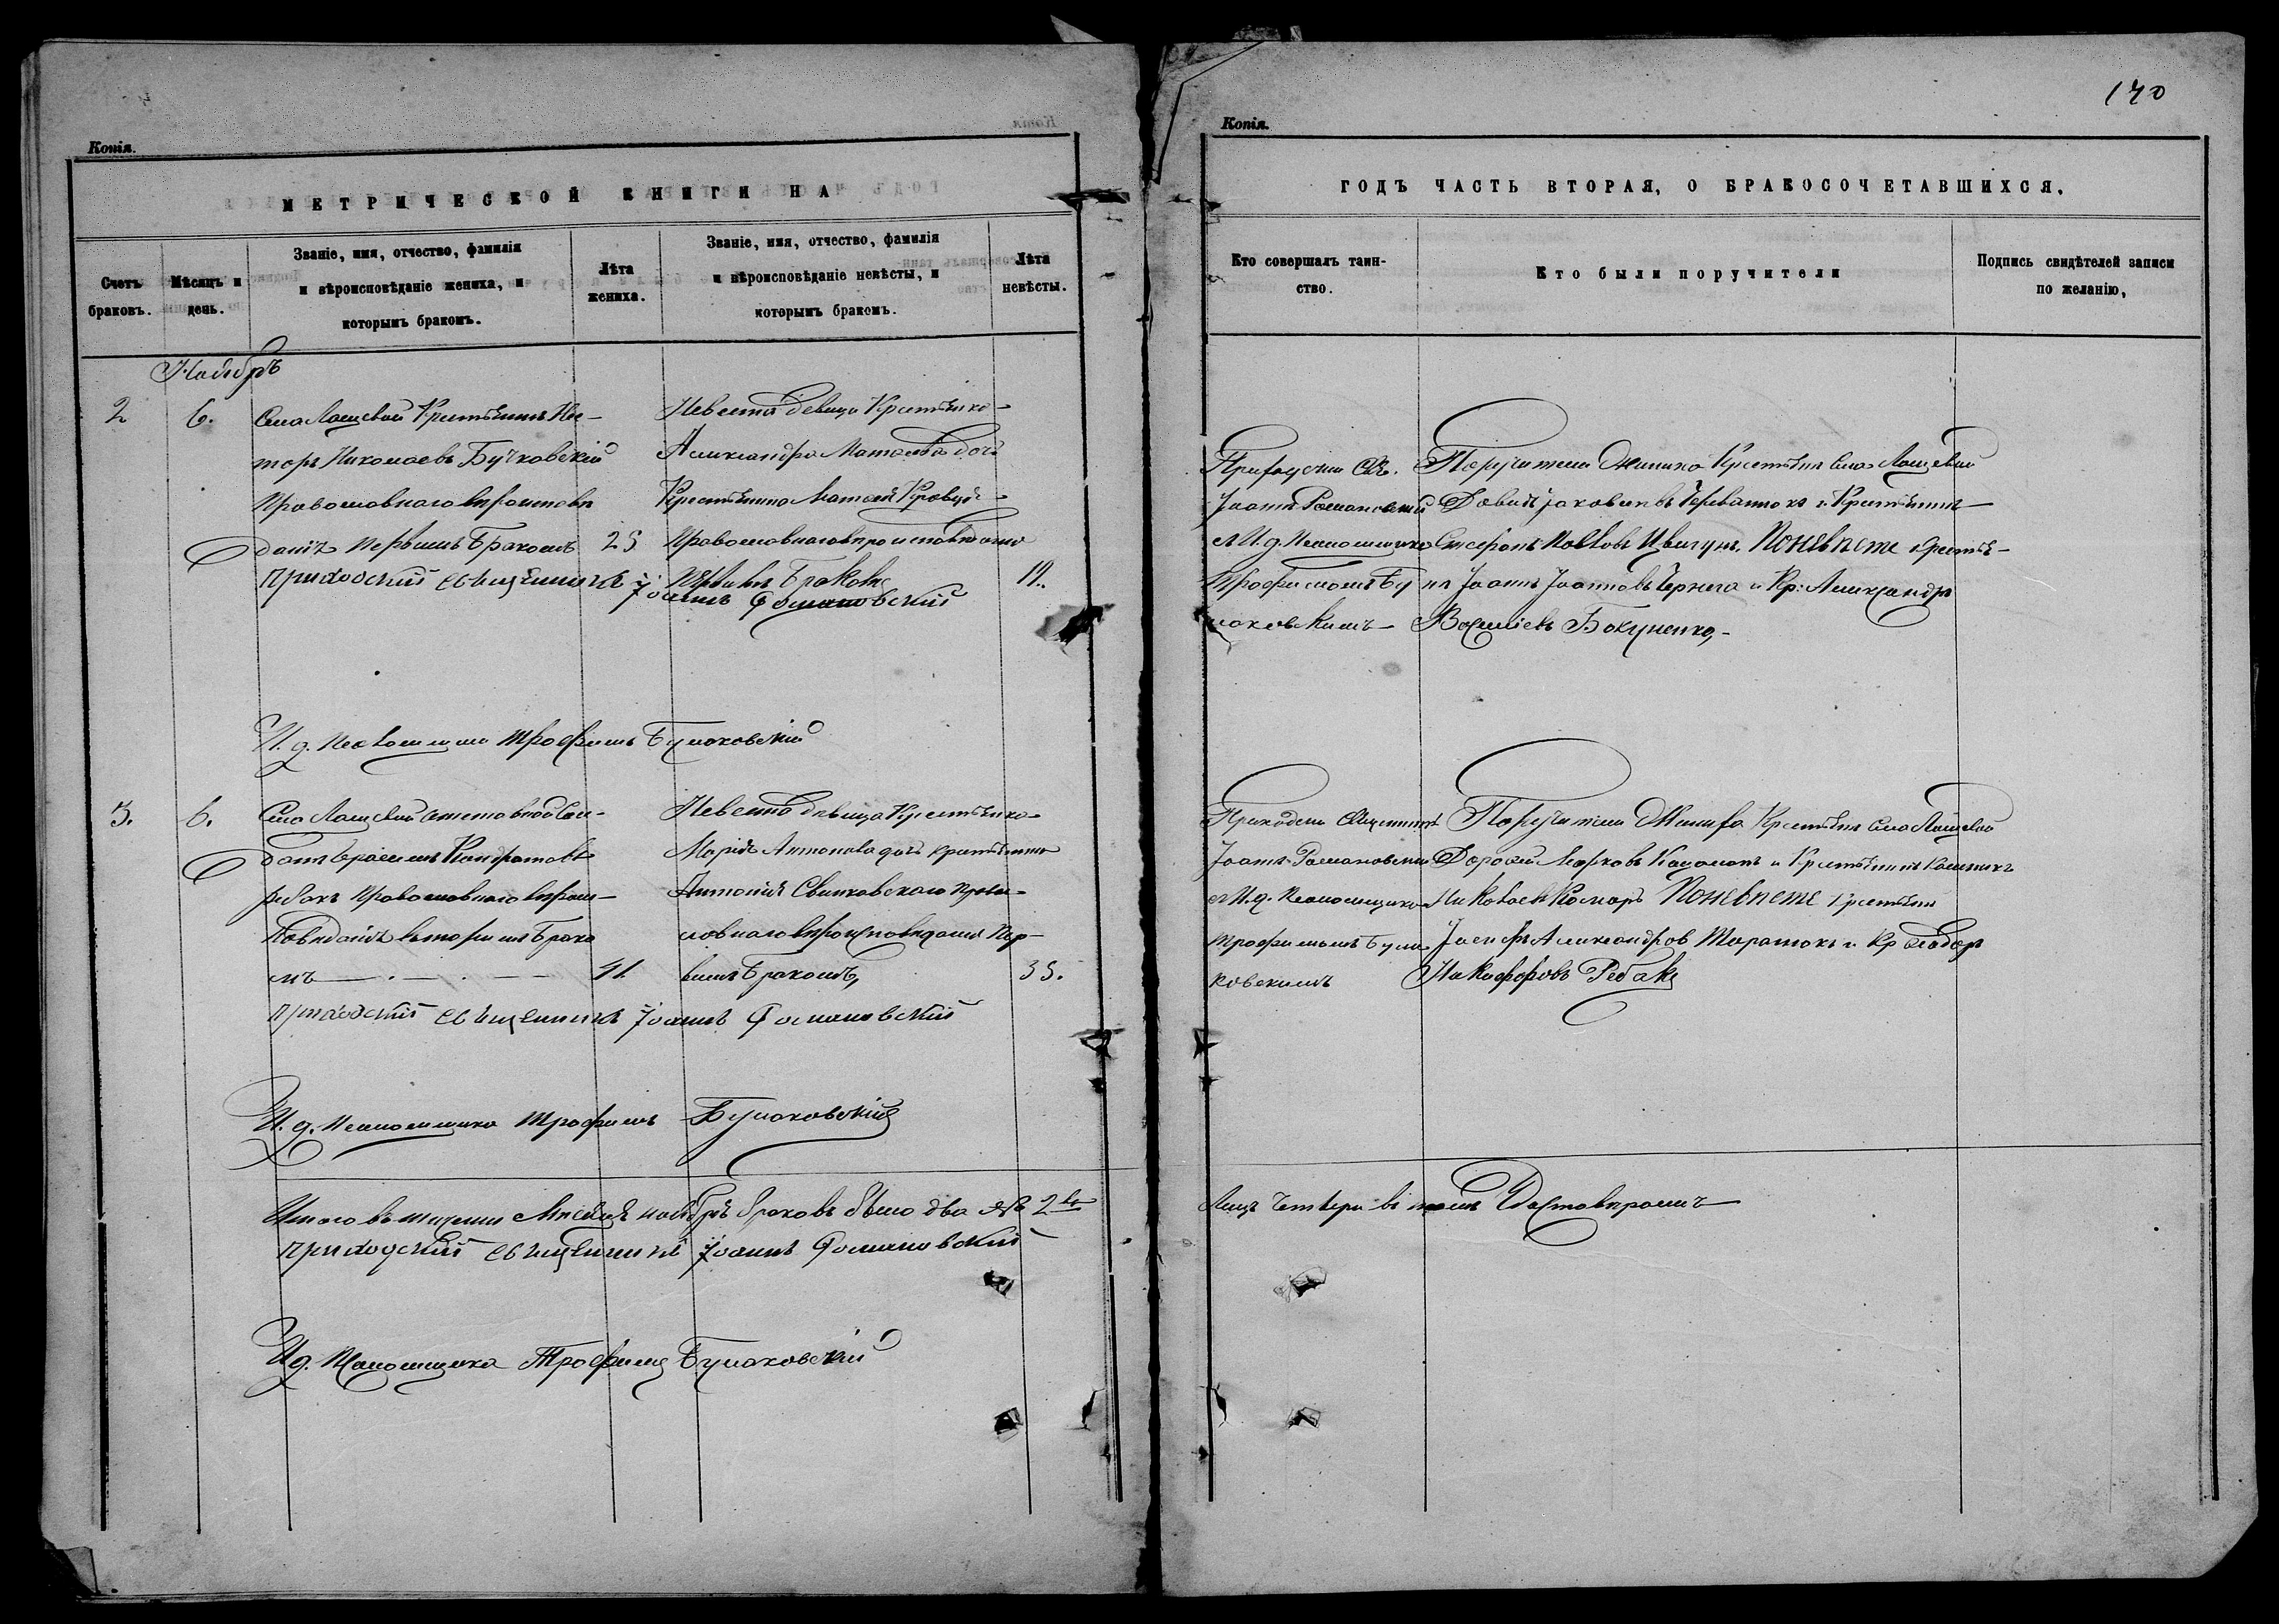 170
Копія.
МЕТРИЧЕСКОЙ КНИГИ НА
Счетъ браковъ.
Мѣсяцъ и день.
Званіе, имя, отчество, фамилія
и вѣроисповѣданіе жениха, и
которымъ бракомъ.
Лѣта
жениха.
Званіе, имя, отчество, фамилія
и вѣроисповѣданіе невѣсты, и
которымъ бракомъ.
Лѣта
невѣсты.
Ноябрь
2 6.
Села Лащевой Крестьянинъ Нес-
торъ Николаевъ Бучковскій
Православнаго вѣроисповѣ
данія Первымъ Бракомъ 25
Невеста девица Крестьянка
Александра Матвеева дочь
Крестьянина Матвея
Православнаго вероисповеданія
Первымъ Бракомъ 19.
Приходскій священникъ Іоаннъ Романовскій
И. д. Псаломщика Трофимъ Булаковскій
3. 6.
Села Лащевой отставной Сол-
датъ Герасимъ Кондратовъ
Рибакъ Православнаго вѣрои-
поведанія вторымъ Брако
мъ 41.
Невеста девица Крестьянка
Марія Антонова дочь крестьянина
Антонія Свинковскаго Право-
славнаго вероисповедания Пер-
вымъ Бракомъ, 35.
Приходскій священникъ Іоаннъ Романовскій
И. д. Псаломщика Трофимъ Булаковскій
Итого въ теченіи месяца ноября браковъ было два № 2
Приходскій священникъ Іоаннъ Романовскій
И д. Псаломщика Трофимъ Булаковскій
Копія.
ГОДЪ ЧАСТЬ ВТОРАЯ, О БРАКОСОЧЕТАВШИХСЯ.
Кто совершалъ таин-
ство.
Кто были поручители
Подпись свидѣтелей записи
по желанію,
Приходскій Св.
Іоаннъ Романовскій
с И. д. Псаломщика
Трофимомъ Бу
лаковскимъ
Поручители Жениха Крестьяне Села Лащевой
Давидъ Яковлевъ и Крестьянинъ
Цвигунъ. По невесте крестья-
не Іоаннъ Іоанновъ Чернега и Кр: Александръ
Василіевъ Бокуненко,
Приходскій Священникъ
Іоаннъ Романовскій
с И. д. Псаломщика
Трофимомъ Була
ковскимъ
Поручители Жениха Крестьяне Села Лащевой
Дорофей Марковъ и Крестьянинъ
Комаръ По невесте крестьяне
Іосифъ Александров Таратокъ и Кр Феодоръ
Никифоровъ Рибакъ
Лицъ Четвери в томъ Удостоверяемъ